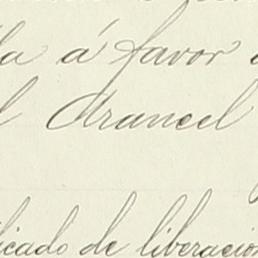 la á favor
l Arancel
licado de liberacion